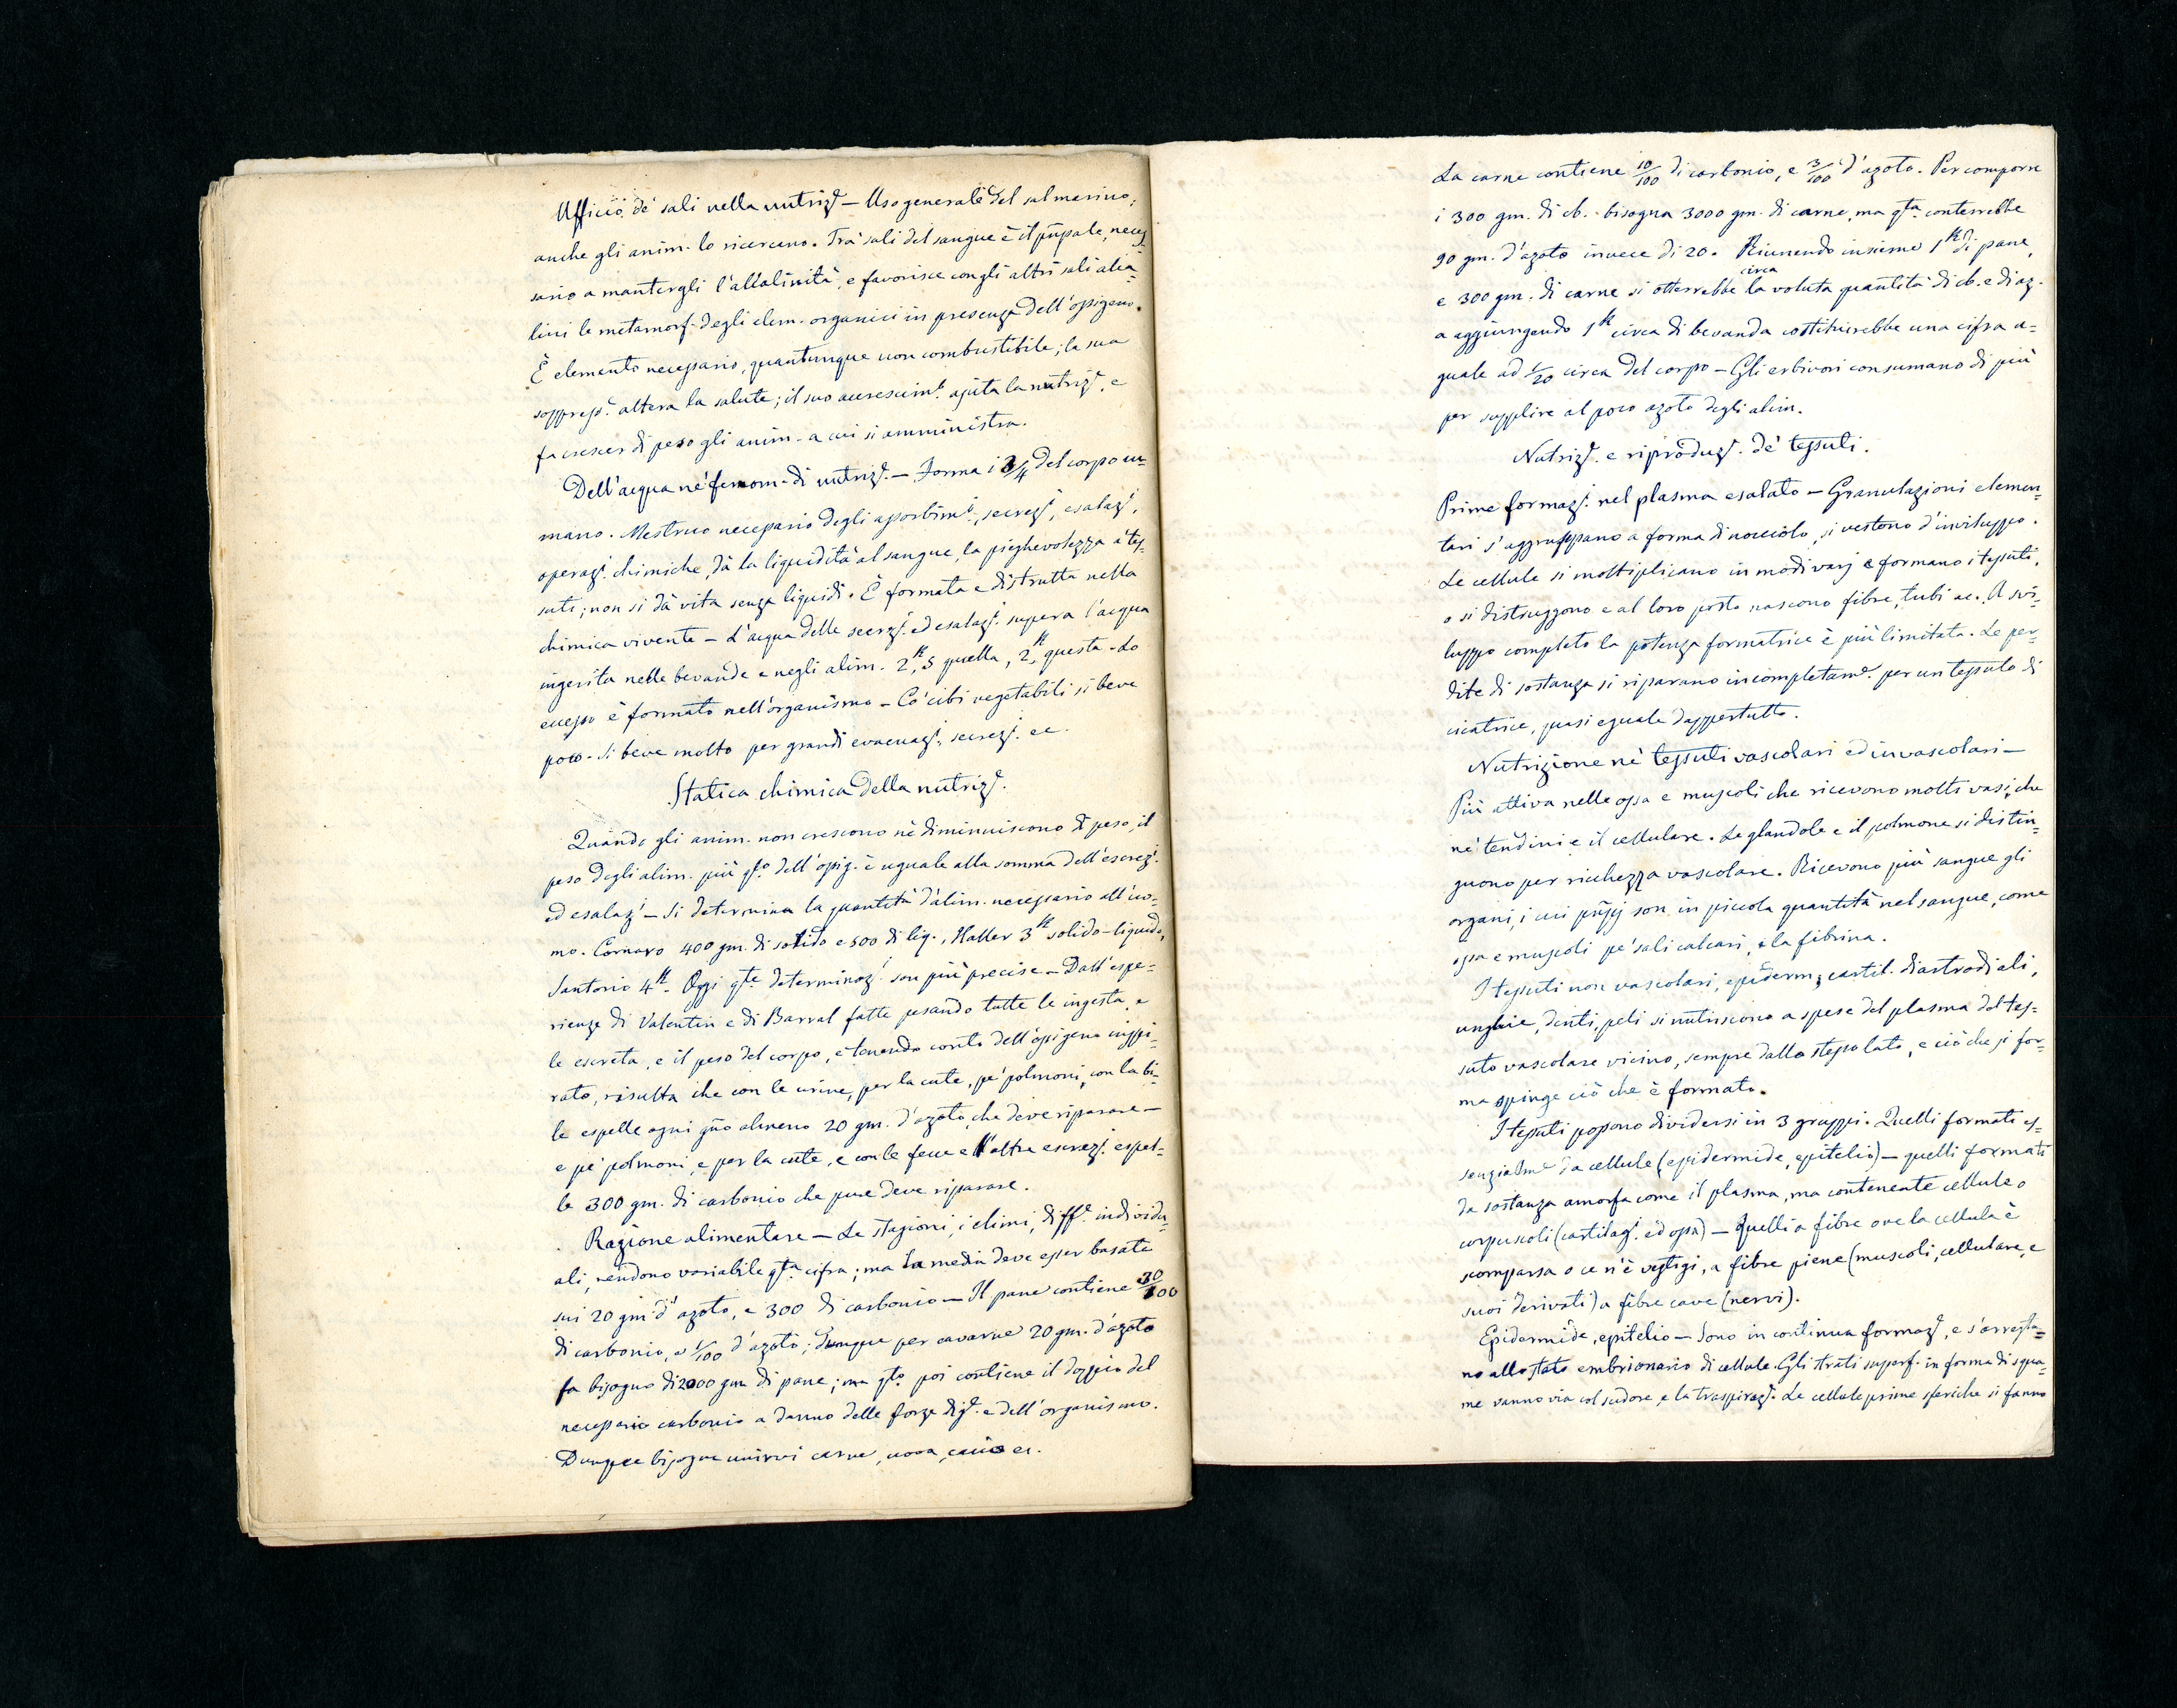 Ufficio de' sali nella nutriz.e — Uso generale del sal marino;
anche gli anim. lo ricercano. Tra' sali del sangue è il pñpale, neces-
sario a mantergli l'alcalinità, e favorisce con gli altri sali alca-
lini le metamorf. degli elem. organici in presenza dell'ossigeno.
È elemento necessario, quantunque non combustibile; la sua
soppress.e altera la salute; il suo accrescim.to ajuta la nutriz.e, e
fa crescer di peso gli anim. a cui si amministra.
Dell'acqua ne' fenom. di nutriz.e — Forma i 3/4 del corpo u-
mano. Mestruo necessario degli assorbim.ti, secrez.i, esalaz.i,
operaz.i chimiche, dà la liquidità al sangue, la pieghevolezza a' tes-
suti; non si dà vita senza liquidi. È formata e distrutta nella
chimica vivente — L'acqua delle secrez.i ed esalaz.i supera l'acqua
ingerita nelle bevande e negli alim. 2k,5 quella, 2k questa. Lo
eccesso è formato nell'organismo — Co' cibi vegetabili si beve
poco. Si beve molto per grandi evacuaz.i, secrez.i ec.
Statica chimica della nutriz.e
Quando gli anim. non crescono nè diminuiscono di peso, il
peso degli alim. più q.to dell'ossig. è uguale alla somma dell'escrez.i
ed esalaz.i — Si determina la quantità d'alim. necessario all'uo-
mo. Cornaro 400 gm. di solido e 500 di liq., Haller 3k solido-liquido,
Santorio 4k. Oggi q.te determinaz.i son più precise — Dall'espe-
rienze di Valentin e di Barral fatte pesando tutte le ingesta, e
le escreta, e il peso del corpo, e tenendo conto dell'ossigeno inspi-
rato, risulta che con le urine, per la cute, pe' polmoni, con la bi-
le espelle ogni gño almeno 20 gm. d'azoto, che deve riparare —
e pe' polmoni, e per la cute, e con le fecce e l'altre escrez.i espel-
le 300 gm. di carbonio che pure deve riparare.
Razione alimentare — Le stagioni, i climi, diff.e individu-
ali, rendono variabile q.ta cifra; ma la media deve esser basata
sui 20 gm. d'azoto, e 300 di carbonio — Il pane contiene 30/100
di carbonio, e 1/100 d'azoto; dunque per cavarne 20 gm. d'azoto
fa bisogno di 2000 gm di pane; ma q.to poi contiene il doppio del
necessario carbonio a danno delle forze dig.e e dell'organismo.
Dunque bisogna unirvi carne, uova, cacio ec.
La carne contiene 10/100 di carbonio, e 3/100 d'azoto. Per comporre
i 300 gm. di cb. bisogna 3000 gm. di carne, ma q.ta conterrebbe
90 gm. d'azoto invece di 20. Riunendo insieme 1k di pane,
e 300 gm. di carne si otterrebbe circa la voluta quantità di cb. e di az.
a aggiungendo 1k circa di bevanda costituirebbe una cifra u-
guale ad 1/20 circa del corpo — Gli erbivori consumano di più
per supplire al poco azoto degli alim.
Nutriz.e e riproduz.e de' tessuti.
Prime formaz.i nel plasma esalato — Granulazioni elemen-
tari s'aggruppano a forma di nocciolo, si vestono d'inviluppo.
Le cellule si moltiplicano in modi varj e formano i tessuti,
o si distruggono e al loro posto nascono fibre, tubi ec. A svi-
luppo completo la potenza formatrice è più limitata. Le per-
dite di sostanza si riparano incompletam.e per un tessuto di
cicatrice, quasi eguale dappertutto.
Nutrizione ne' tessuti vascolari ed invascolari —
Più attiva nelle ossa e muscoli che ricevono molti vasi, che
ne' tendini e il cellulare. Le glandole e il polmone si distin-
guono per ricchezza vascolare. Ricevono più sangue gli
organi, i cui pñpj son in piccola quantità nel sangue, come
ossa e muscoli pe' sali calcari, e la fibrina.
I tessuti non vascolari, epiderm., cartil. diartrodiali,
unghie, denti, peli si nutriscono a spese del plasma del tes-
suto vascolare vicino, sempre dallo stesso lato, e ciò che si for-
ma spinge ciò che è formato.
I tessuti possono dividersi in 3 gruppi. Quelli formati es-
senzialm.e da cellule (epidermide, epitelio) — quelli formati
da sostanza amorfa come il plasma, ma contenente cellule o
corpuscoli (cartilag.i ed ossa) — Quelli a fibre ove la cellula è
scomparsa o ce n'è vestigi, a fibre piene (muscoli, cellulare, e
suoi derivati) a fibre cave (nervi).
Epidermide, epitelio — Sono in continua formaz.e, e s'arresta-
no allo stato embrionario di cellule. Gli strati superf. in forma di squa-
me vanno via col sudore, e la traspiraz.e. Le cellule prime sferiche si fanno